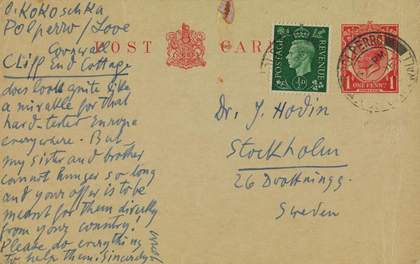 O. KOKOSCHKA
POLperro / Looe
Cornwall
Cliff End Cottage
does look quite like
a mirakle for that
hard-tested Europe
everywhere. But
my sister and brother
cannot hunger so long
and your offer is to be
meant for them directly
from your country!
Please do everything
to help them. Sincerely
yours
POST CARD
POSTAGE
REVENUE
½D
POLPERRO
ONE PENNY
Dr. J. Hodin
Stockholm
26 Drottningg.
Sweden